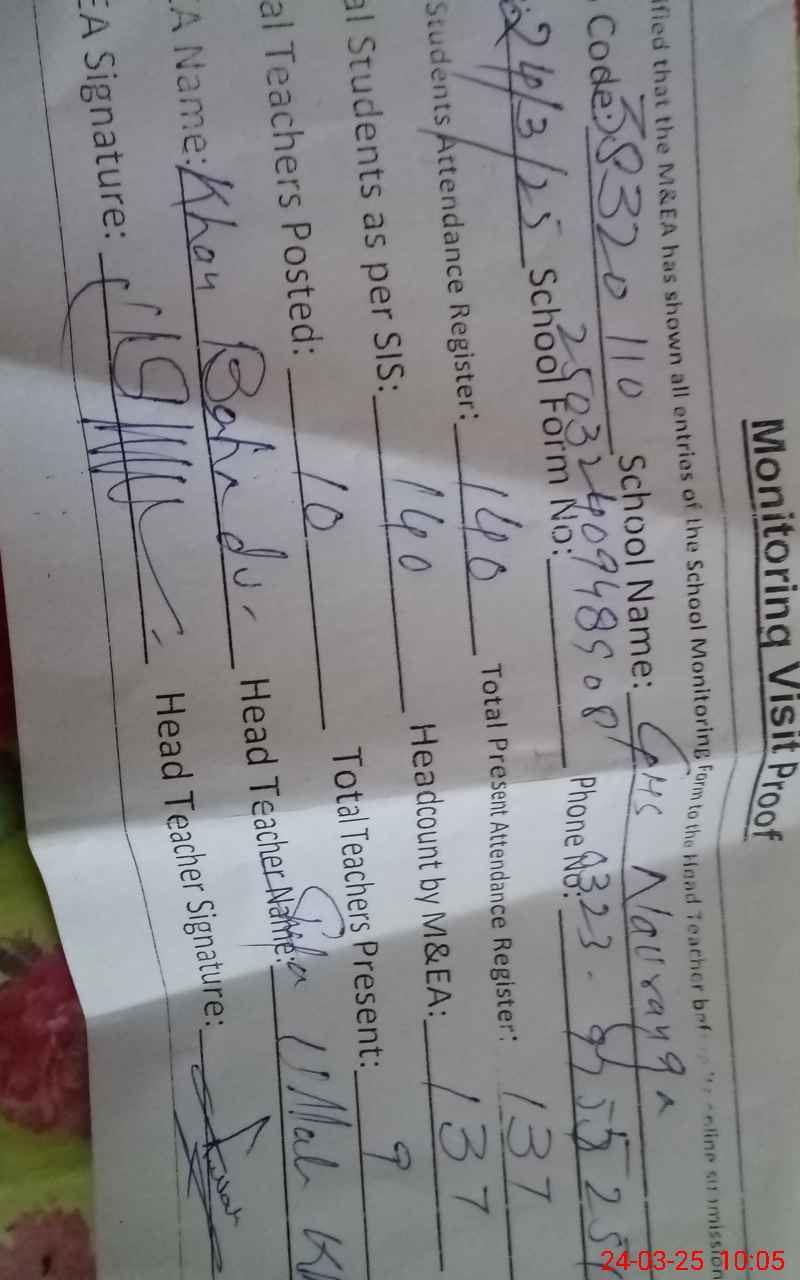 Monitoring Visit Proof
ified that the M&EA has shown all entries of the School Monitoring Form to the Head Teacher submission
Code: 38320110 School Name: GHS Nauranga
24/3/25 School Form No: 2503240948508 Phone No: 0323-
Students Attendance Register: 140 Total Present Attendance Register: 137
al Students as per SIS: 140 Headcount by M&EA: 137
al Teachers Posted: 10 Total Teachers Present: 9
EA Name: Khan Head Teacher Name: Ullah Kh
EA Signature: Head Teacher Signature:
24-03-25 10:05